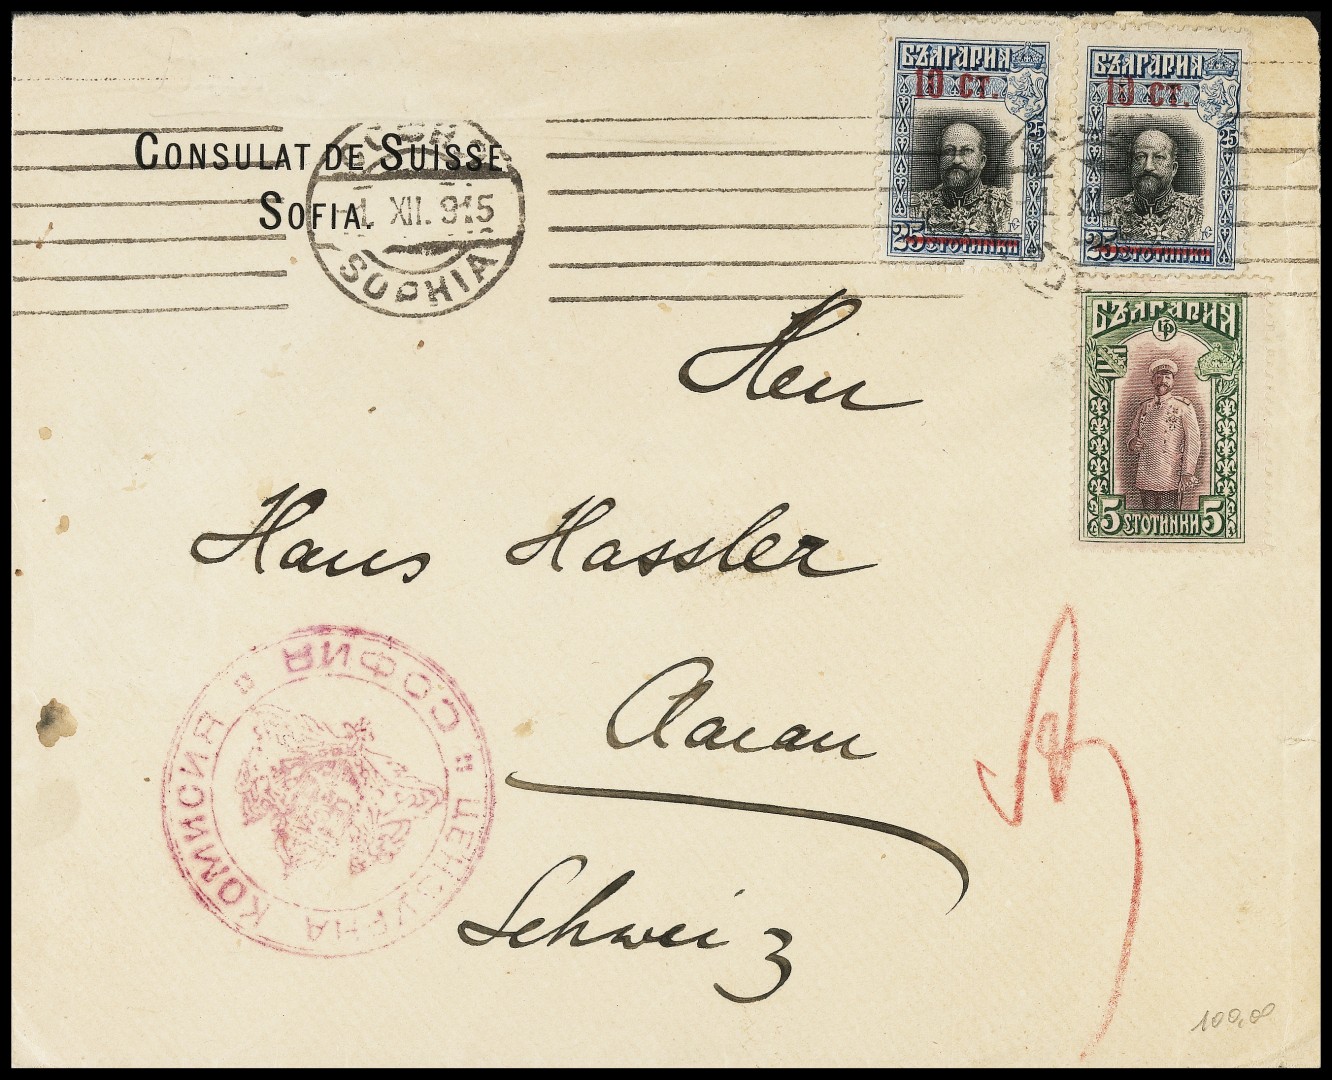 CONSULAT DE SUISSE
SOFIA.
1. XII. 915
SOPHIA
БЪЛГАРИЯ
10 СТ.
25
25 СТОТИНКИ
БЪЛГАРИЯ
10 СТ.
25
25 СТОТИНКИ
БЪЛГАРИЯ
5 СТОТИНКИ 5
Herr
Hans Hassler
Aarau
Schweiz
ЦЕНЗУРНА КОМИСИЯ
СОФИЯ